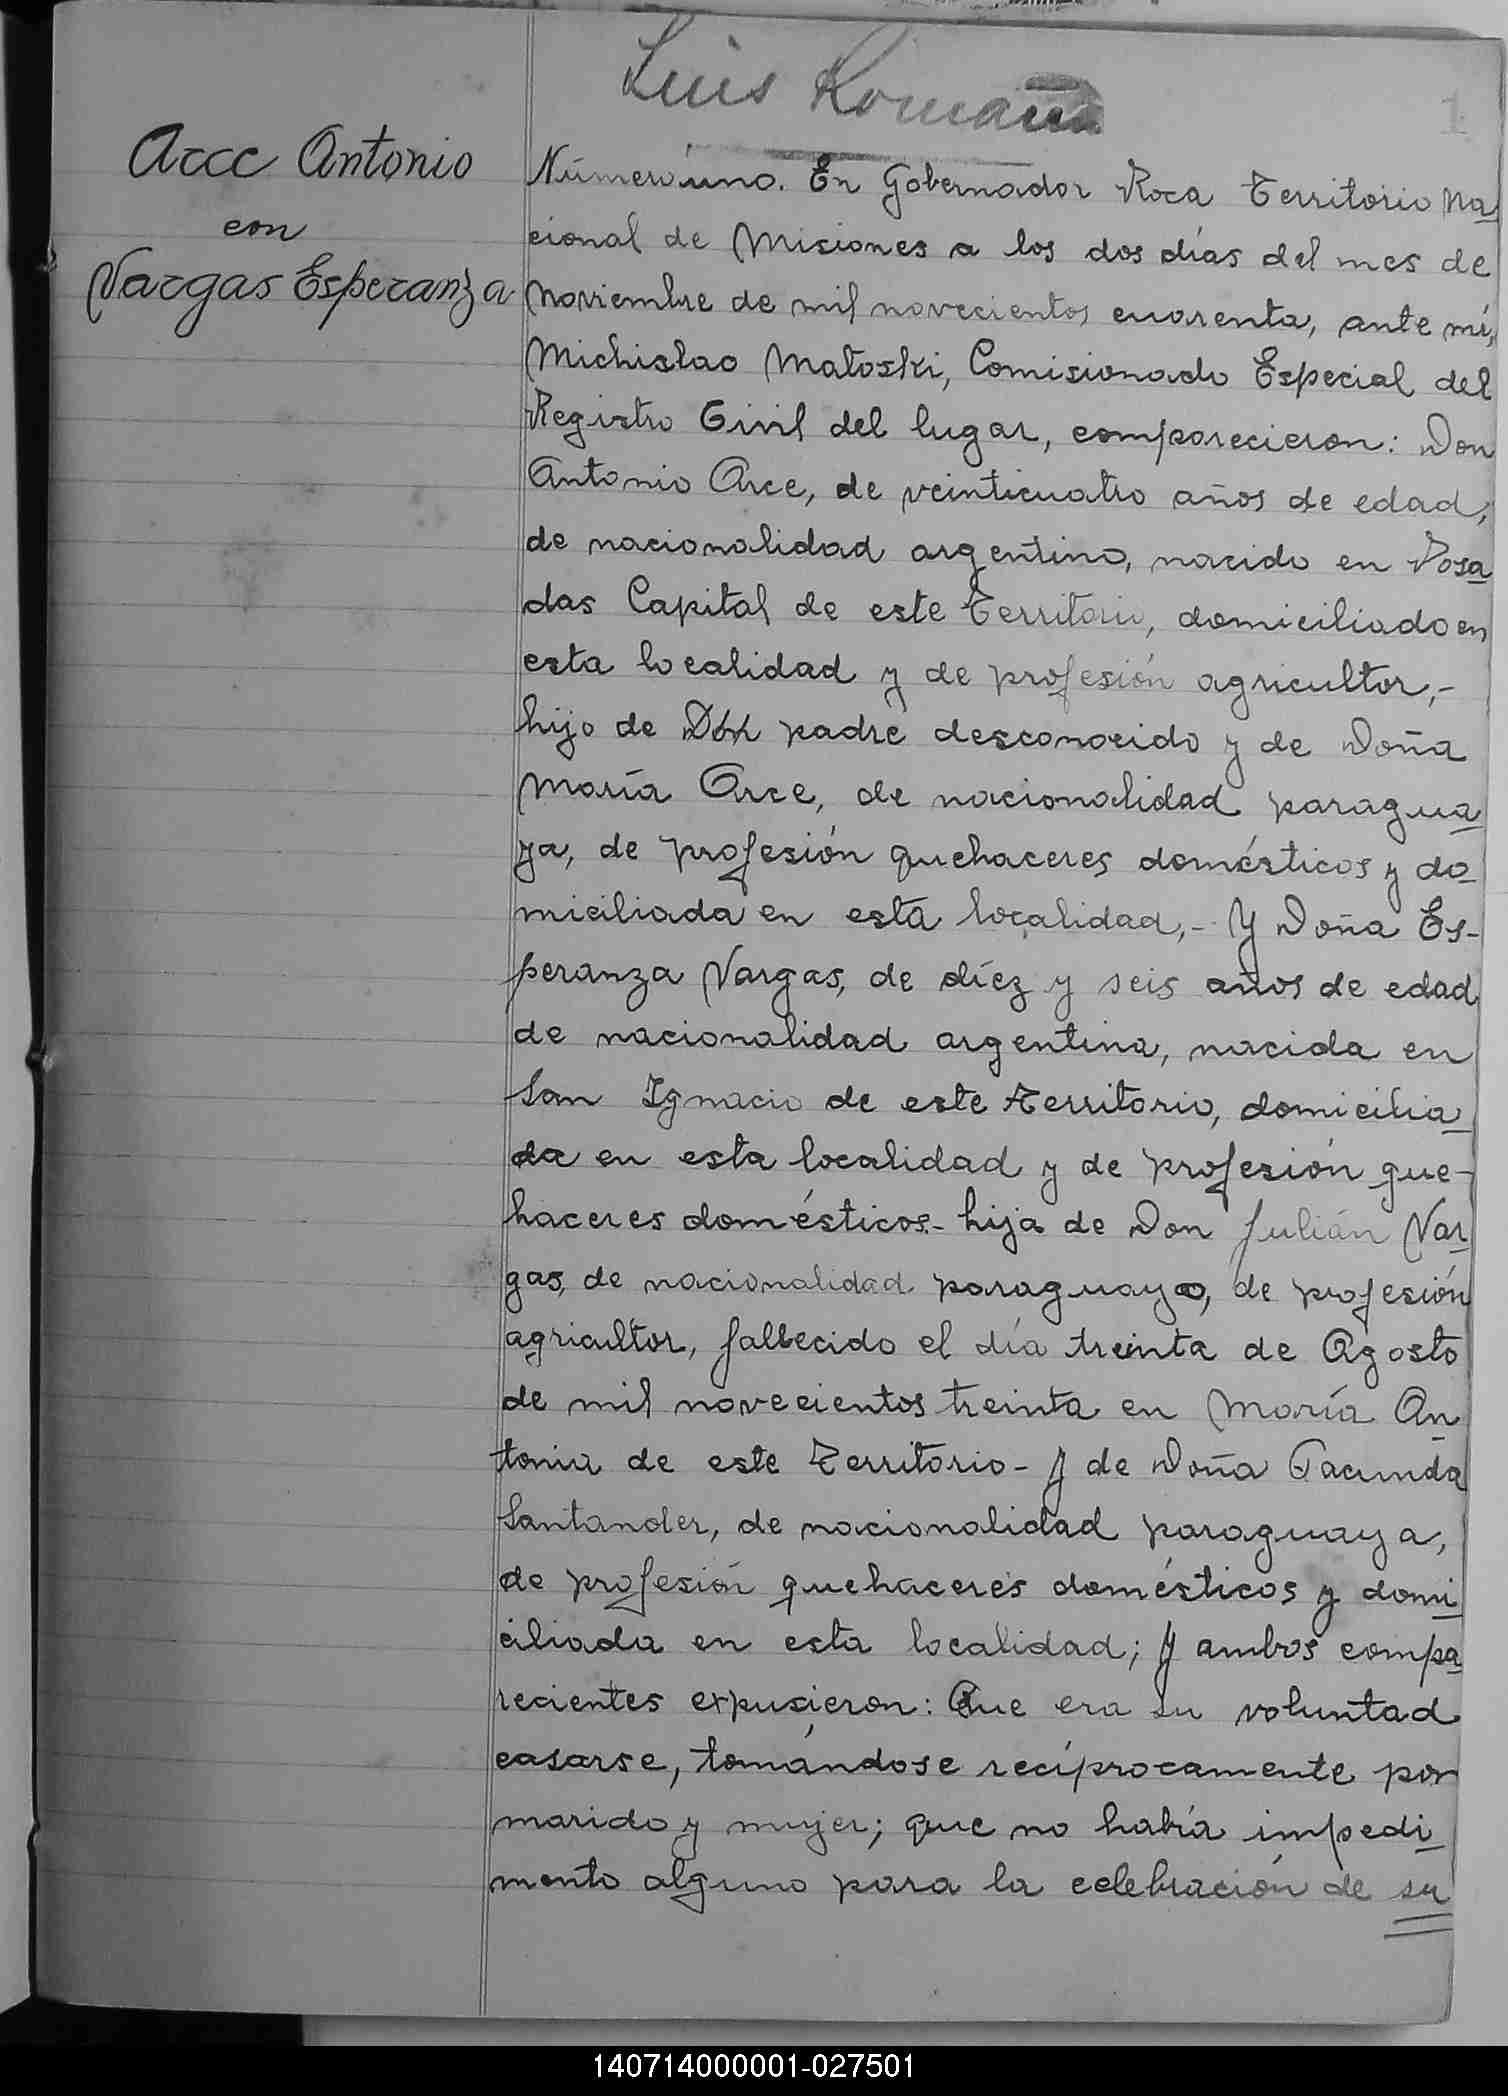 Luis Romaña
1
Arce Antonio
con
Vargas Esperanza
Número uno. En Gobernador Roca Territorio Na
cional de Misiones a los dos días del mes de
Noviembre de mil novecientos cuarenta, ante mí,
Michislao Matoski, Comisionado Especial del
Registro Civil del lugar, comparecieron: Don
Antonio Arce, de veinticuatro años de edad,
de nacionalidad argentino, nacido en Posa
das Capital de este Territorio, domiciliado en
esta localidad y de profesión agricultor,-
hijo de padre desconocido y de Doña
María Arce, de nacionalidad paragua
ya, de profesión quehaceres domésticos y do
miciliada en esta localidad,- Y Doña Es-
peranza Vargas, de diez y seis años de edad
de nacionalidad argentina, nacida en
San Ignacio de este territorio, domicilia
da en esta localidad y de profesión que-
haceres domésticos- hija de Don Julián Var
gas, de nacionalidad paraguayo, de profesión
agricultor, fallecido el día treinta de Agosto
de mil novecientos treinta en María An
tonia de este Territorio- y de Doña Facunda
Santander, de nacionalidad paraguaya,
de profesión quehaceres domésticos y domi
ciliada en esta localidad; y ambos compa
recientes expusieron: Que era su voluntad
casarse, tomándose recíprocamente por
marido y mujer; que no había impedi
mento alguno para la celebración de su
140714000001-027501